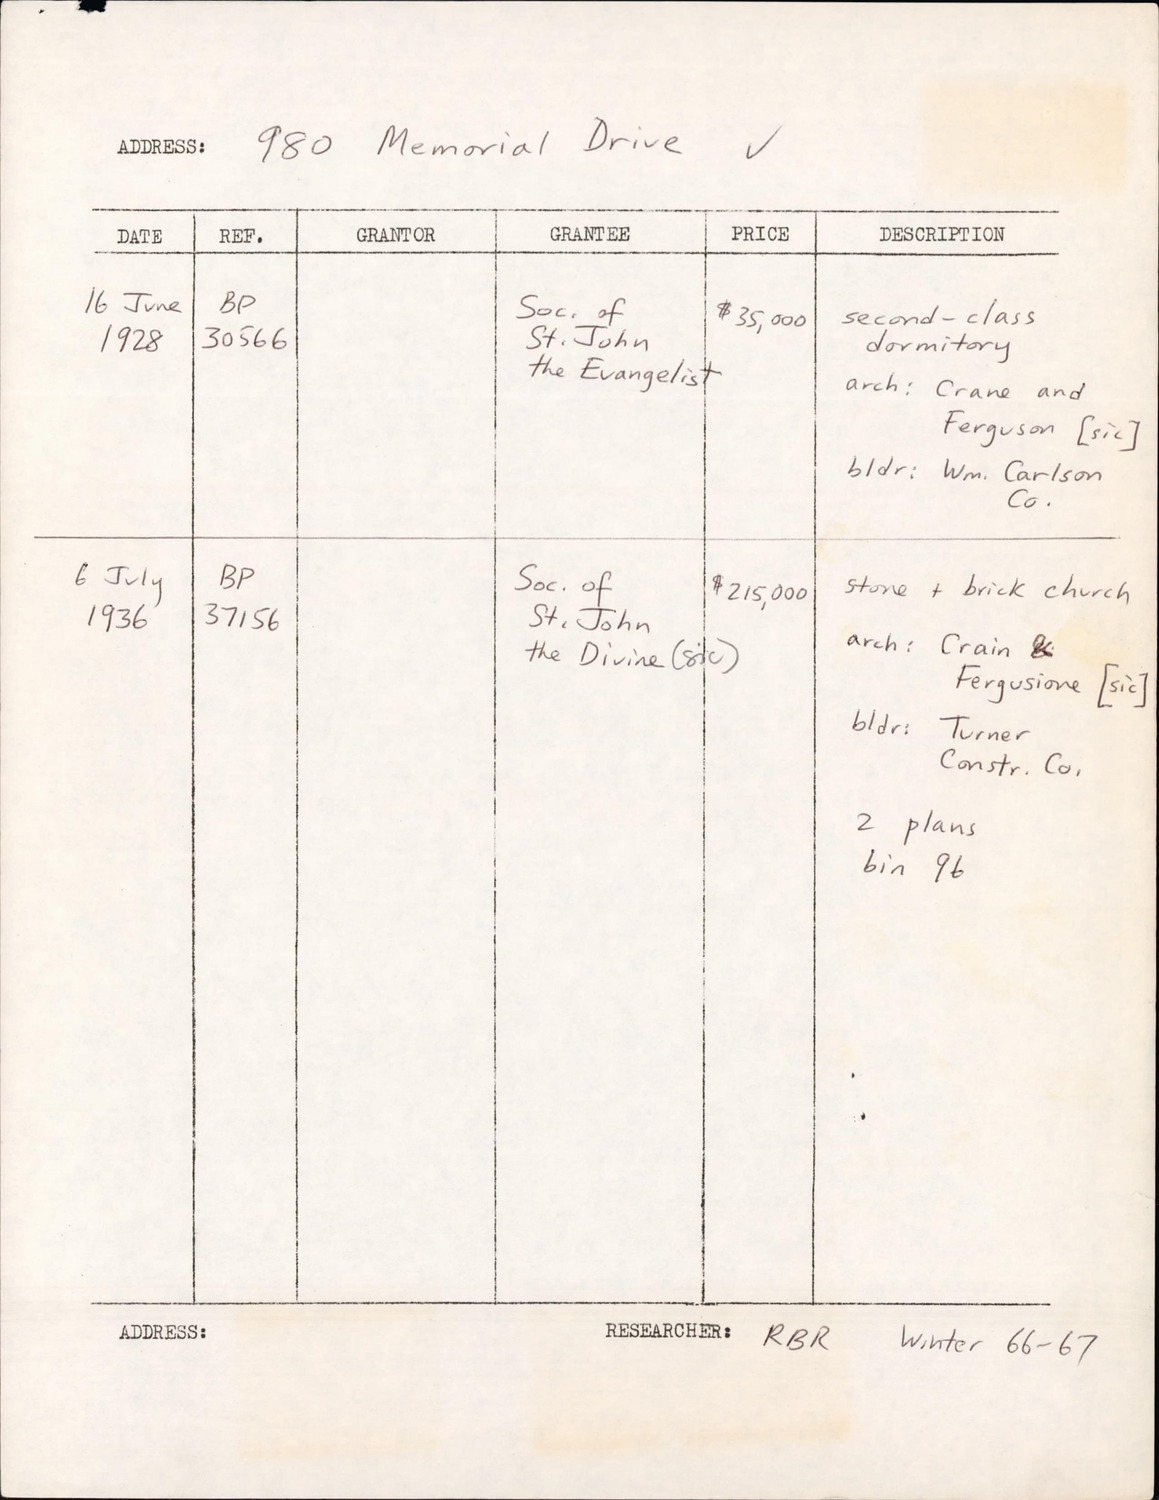 ADDRESS: 980 Memorial Drive ✓
DATE REF. GRANTOR GRANTEE PRICE DESCRIPTION
16 June
1928
BP
30566
Soc. of
St. John
the Evangelist
$35,000
second-class
dormitory
arch: Crane and
Ferguson [sic]
bldr: Wm. Carlson
Co.
6 July
1936
BP
37156
Soc. of
St. John
the Divine (sic)
$215,000
stone + brick church
arch: Crain &
Fergusione [sic]
bldr: Turner
Constr. Co.
2 plans
bin 96
ADDRESS: RESEARCHER: RBR Winter 66-67